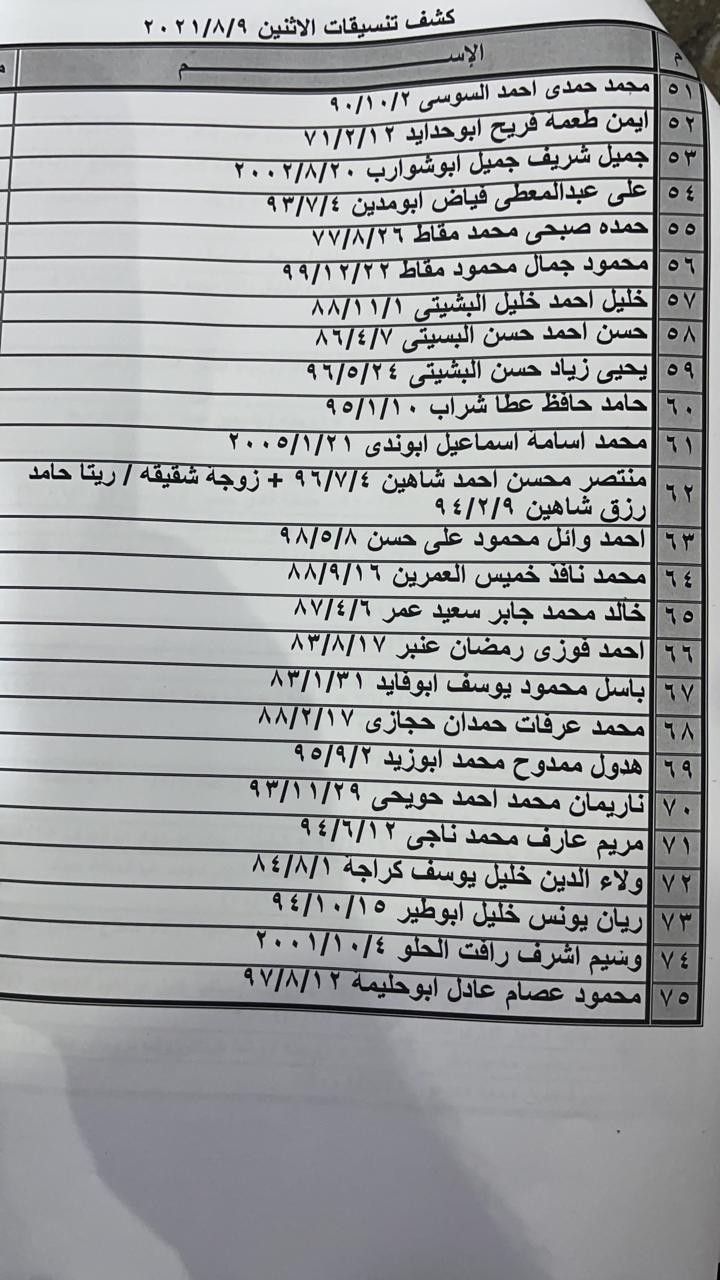 كشف تنسيقات الاثنين ٢٠٢١/٨/٩
م الإســـــــم
٥١ محمد حمدى احمد السوسى ٩٠/١٠/٢
٥٢ ايمن طعمة فريح ابوحدايد ٧١/٢/١٢
٥٣ جميل شريف جميل ابوشوارب ٢٠٠٢/٨/٢٠
٥٤ على عبدالمعطى فياض ابومدين ٩٣/٧/٤
٥٥ حمده صبحى محمد مقاط ٧٧/٨/٢٦
٥٦ محمود جمال محمود مقاط ٩٩/١٢/٢٢
٥٧ خليل احمد خليل البشيتى ٨٨/١١/١
٥٨ حسن احمد حسن البسيتى ٨٦/٤/٧
٥٩ يحيى زياد حسن البشيتى ٩٦/٥/٢٤
٦٠ حامد حافظ عطا شراب ٩٥/١/١٠
٦١ محمد اسامة اسماعيل ابوندى ٢٠٠٥/١/٢١
٦٢ منتصر محسن احمد شاهين ٩٦/٧/٤ + زوجة شقيقه / ريتا حامد
رزق شاهين ٩٤/٢/٩
٦٣ احمد وائل محمود على حسن ٩٨/٥/٨
٦٤ محمد نافذ خميس العمرين ٨٨/٩/١٦
٦٥ خالد محمد جابر سعيد عمر ٨٧/٤/٦
٦٦ احمد فوزى رمضان عنبر ٨٣/٨/١٧
٦٧ باسل محمود يوسف ابوفايد ٨٣/١/٣١
٦٨ محمد عرفات حمدان حجازى ٨٨/٢/١٧
٦٩ هدول ممدوح محمد ابوزيد ٩٥/٩/٢
٧٠ ناريمان محمد احمد حويحى ٩٣/١١/٢٩
٧١ مريم عارف محمد ناجى ٩٤/٦/١٢
٧٢ ولاء الدين خليل يوسف كراجة ٨٤/٨/١
٧٣ ريان يونس خليل ابوطير ٩٤/١٠/١٥
٧٤ وسيم اشرف رافت الحلو ٢٠٠١/١٠/٤
٧٥ محمود عصام عادل ابوحليمة ٩٧/٨/١٢